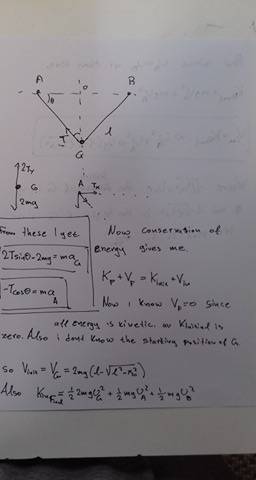 A
θ
o
B
T
T
l
G
2Ty
G
2mg
A
Tx
From these I get
2Tsinθ-2mg=ma_G
-Tcosθ=ma_A
Now conservation of
energy gives me.
K_F + V_F = K_init + V_in
Now I know V_F=0 since
all energy is kinetic. as Kinitial is
zero. Also I dont know the starting position of G.
so V_init = V_G = 2mg(l-√l²-x₀²)
Also K_Final = ½ 2mU_G² + ½ mU_A² + ½ mU_B²